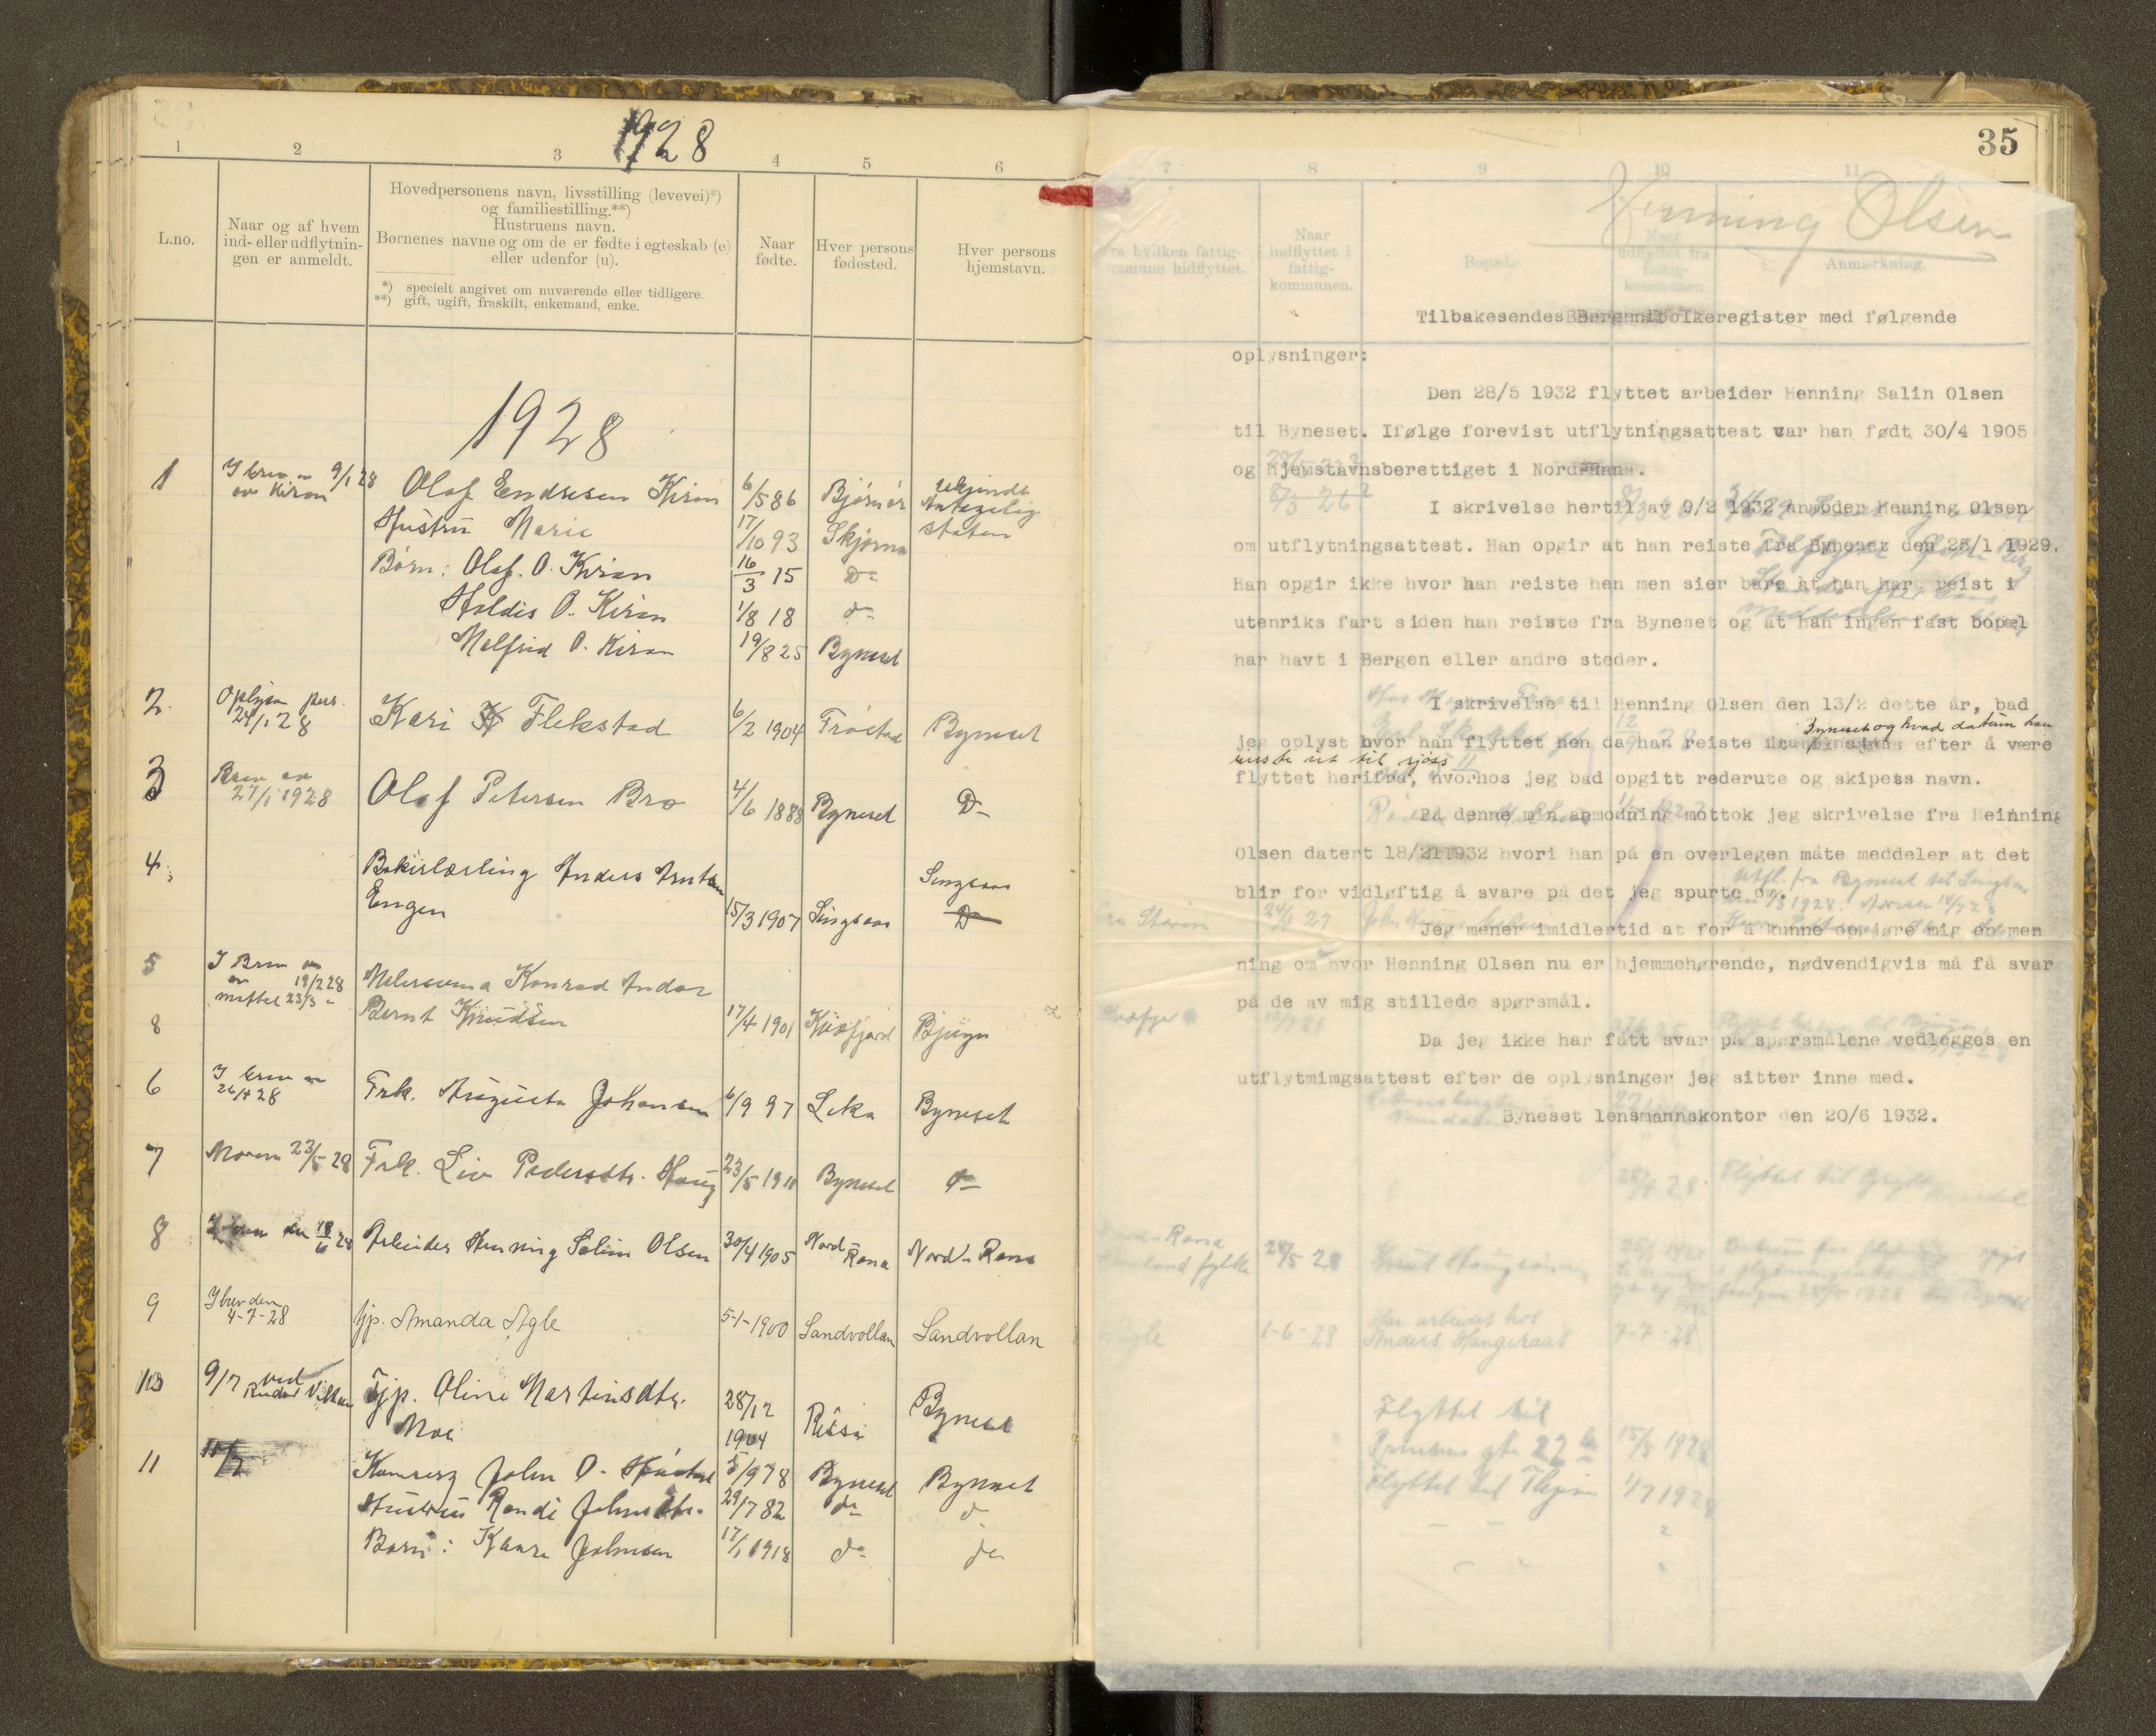 1928
1 2 3 4 5 6
L.no.
Naar og af hvem
ind- eller udflytnin-
gen er anmeldt.
Hovedpersonens navn, livsstilling (levevei)*)
og familiestilling.**)
Hustruens navn.
Børnenes navne og om de er fødte i egteskab (e)
eller udenfor (u).
*) specielt angivet om nuværende eller tidligere.
**) gift, ugift, fraskilt, enkemand, enke.
Naar
fødte.
Hver persons
fødested.
Hver persons
hjemstavn.
1928
1 I brev av 9/1 28 Olaf Endresen Kiran 6/5 86 Bjørnør Ukjendt
av Kiran Antagelig
Hustru Marie 17/10 93 Skjørna staten
Børn: Olaf. O. Kiran 16/3 15 Do
Haldis O. Kiran 1/8 18 do
Malfrid O. Kiran 19/8 25 Byneset
2. Oplyse pers.
24/1 28 Kari Flekstad 6/2 1904 Frosta Byneset
3 Brev av
27/1 1928 Olaf Petersen Bro 4/6 1888 Byneset Do
4. Bakerlærling Anders Arntsen Singsaas
Engen 15/3 1907 Singsaas Do
5 I Brev av
19/2 28 Konrad Andor
23/3
8 Bernt Knudsen 17/4 1901 Kvæfjord Bjugn
6 I brev av
26/4 28 Frk. Augusta Johansen 6/9 97 Leka Byneset
7 Moren 23/5 28 Frk. Liv Pedersdtr. Haug 23/5 1911 Byneset do
8 I brev den 18/6 28 Arbeider Henning Salin Olsen 30/4 1905 Nord-Rana Nord-Rana
9 I brev den
4-7-28 tjp. Amanda Agle 5-1-1900 Sandvollan Sandvollan
10 9/7 ved Tjp. Oline Martinsdtr. 28/12 Byneset
Moe 1904 Rissa
11 11/7 John O. 5/9 78 Byneset Byneset
Hustru Randi Johnsdtr. 29/7 82 do do
Barn: Kaare Johnsen 17/1 1918 do do
35
7 8 9 10 11
Henning Olsen
Fra hvilken fattig-
kommune hidflyttet.
Naar
indflyttet i
fattig-
kommunen.
Bopæl.
Naar
udflyttet fra
fattig-
kommunen.
Anmærkning.
Tilbakesendes Bergen folkeregister med følgende
oplysninger:
Den 28/5 1932 flyttet arbeider Henning Salin Olsen
til Byneset. Ifølge forevist utflytningsattest var han født 30/4 1905
og hjemstavnsberettiget i Nord-Rana.
I skrivelse hertil av 9/2 1932 anmoder Henning Olsen
om utflytningsattest. Han opgir at han reiste fra Byneset den 25/1 1929.
Han opgir ikke hvor han reiste hen men sier bare at han har reist i
utenriks fart siden han reiste fra Byneset og at han ingen fast bopæl
har havt i Bergen eller andre steder.
I skrivelse til Henning Olsen den 13/2 dette år, bad
Byneset og hvad datum han
jeg oplyst hvor han flyttet hen da han reiste efter å være
reiste ut til sjøss
flyttet herifra, hvorhos jeg bad opgitt rederute og skipess navn.
På denne min anmodning mottok jeg skrivelse fra Heinning
Olsen datert 18/2 1932 hvori han på en overlegen måte meddeler at det
blir for vidløftig å svare på det jeg spurte om.
Jeg mener imidlertid at for å kunne opgjøre mig en men
ning om hvor Henning Olsen nu er hjemmehørende, nødvendigvis må få svar
på de av mig stillede spørsmål.
Da jeg ikke har fått svar på spørsmålene vedlegges en
utflytmimgsattest efter de oplysninger jeg sitter inne med.
Byneset lensmannskontor den 20/6 1932.
Flyttet til
28/5 28
1-6-28 Har arbeidet hos
Anders Hangeraas 7-7-28
Flyttet til
15/5 1928
Flyttet til 1/7 1928